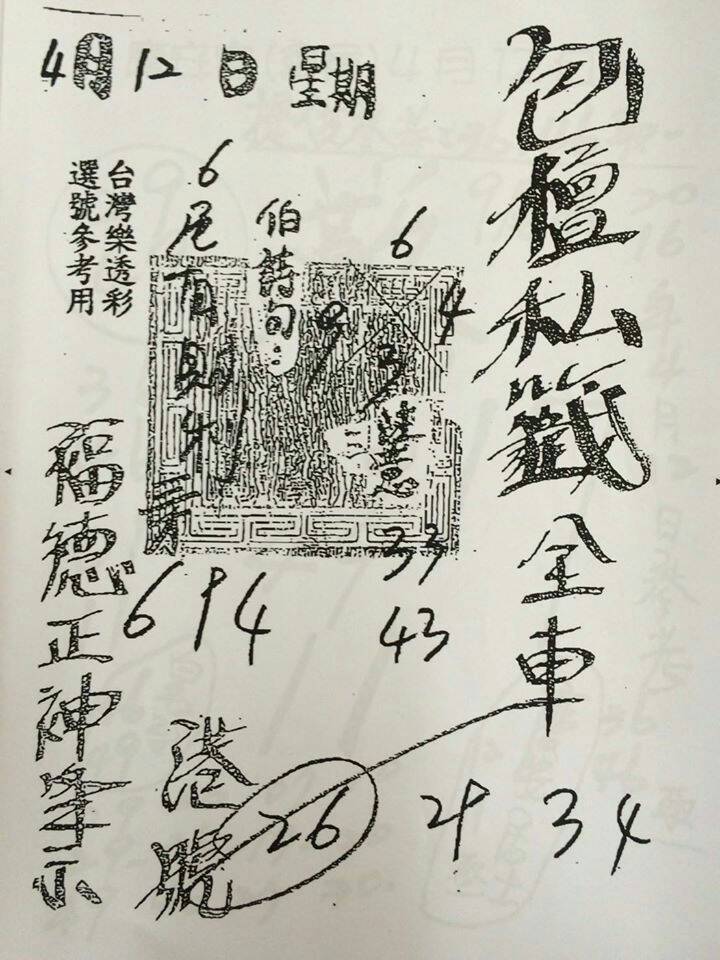 4月12日 星期
包檀私籤 全車
台灣樂透彩
選號參考用
6
4
9
3
伯詩句:
6尾
33
43
6 9 4
福德正神筆示
港號
26 29 34